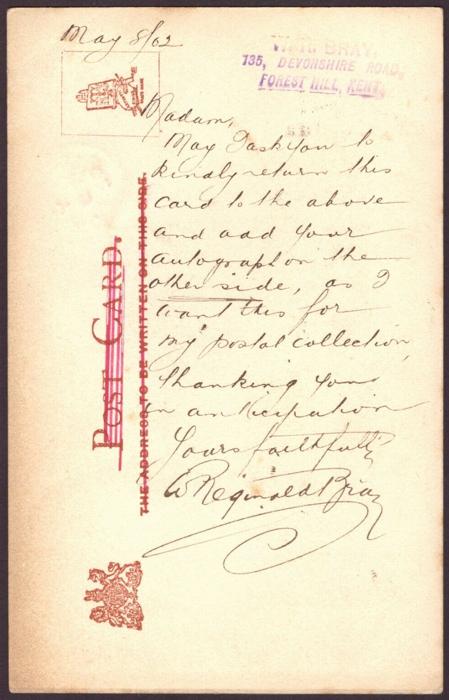 May 8/02
W. R. BRAY,
135, DEVONSHIRE ROAD,
FOREST HILL, KENT.
Madam,
May I ask you to
kindly return this
card to the above
and add your
autograph on the
other side, as I
want this for
my postal collection,
Thanking you
in anticipation
Yours faithfully
W Reginald Bray
POST CARD.
THE ADDRESS TO BE WRITTEN ON THIS SIDE.